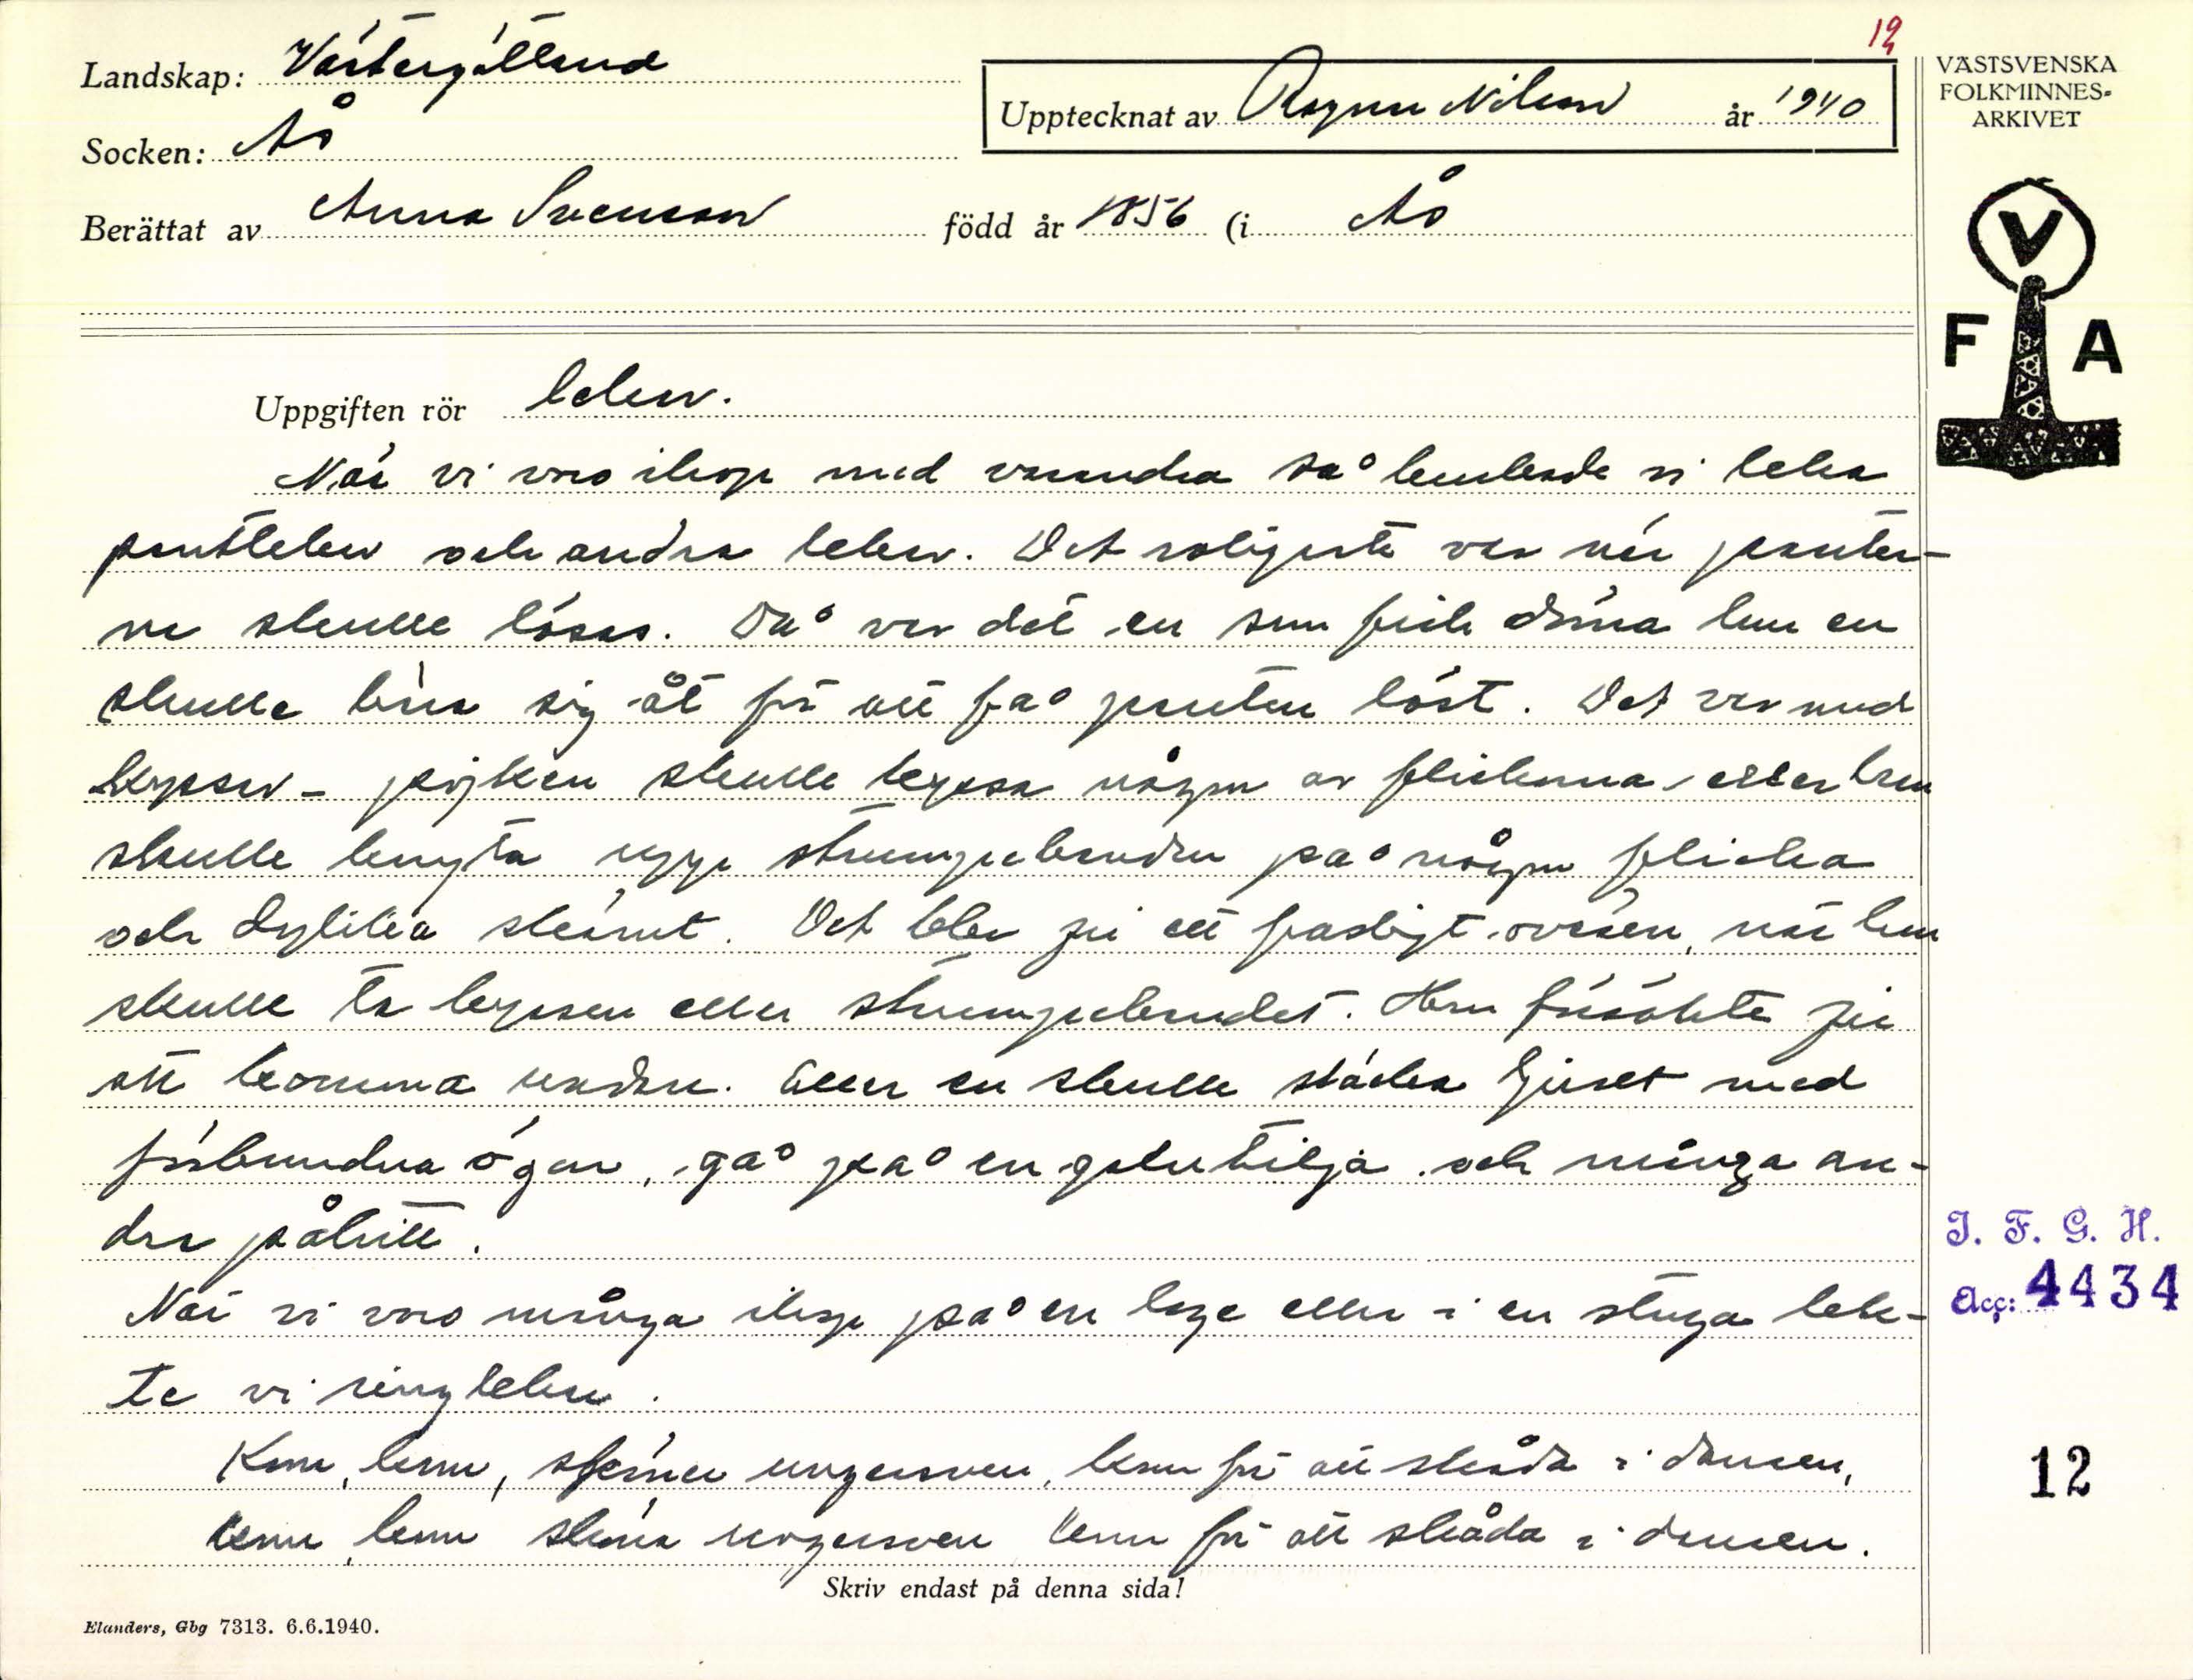 12
Landskap: Västergötland
Upptecknat av Ragnar Nilsson år 1940
VÄSTSVENSKA
FOLKMINNES-
ARKIVET
Socken: Ås
Berättat av Anna Svenson född år 1856 (i Ås
V
F A
Uppgiften rör lekar.
När vi voro ihop med varandra så brukade vi leka
pantlekar och andra lekar. Det roligaste var när panter-
na skulle lösas. Då var det en som fick döma hur en
skulle bära sig åt för att få panten löst. Det var med
kyssar - pojken skulle kyssa någon av flickorna, eller han
skulle knyta upp strumpebanden på någon flicka
och dylika skämt. Det blev ju ett fasligt oväsen, när han
skulle ta kyssen eller strumpebandet. Hon försökte ju
att komma undan. Eller en skulle släcka ljuset med
förbundna ögon, gå på en golvtilja och många an-
dra påhitt.
När vi voro många ihop på en loge eller i en stuga lek-
te vi ringlekar.
Kom, kom, sköna ungersven, kom för att skåda i dansen,
kom, kom sköna ungersven kom för att skåda i dansen.
I. F. G. H.
Acc: 4434
12
Skriv endast på denna sida!
Elanders, Gbg 7313. 6.6.1940.